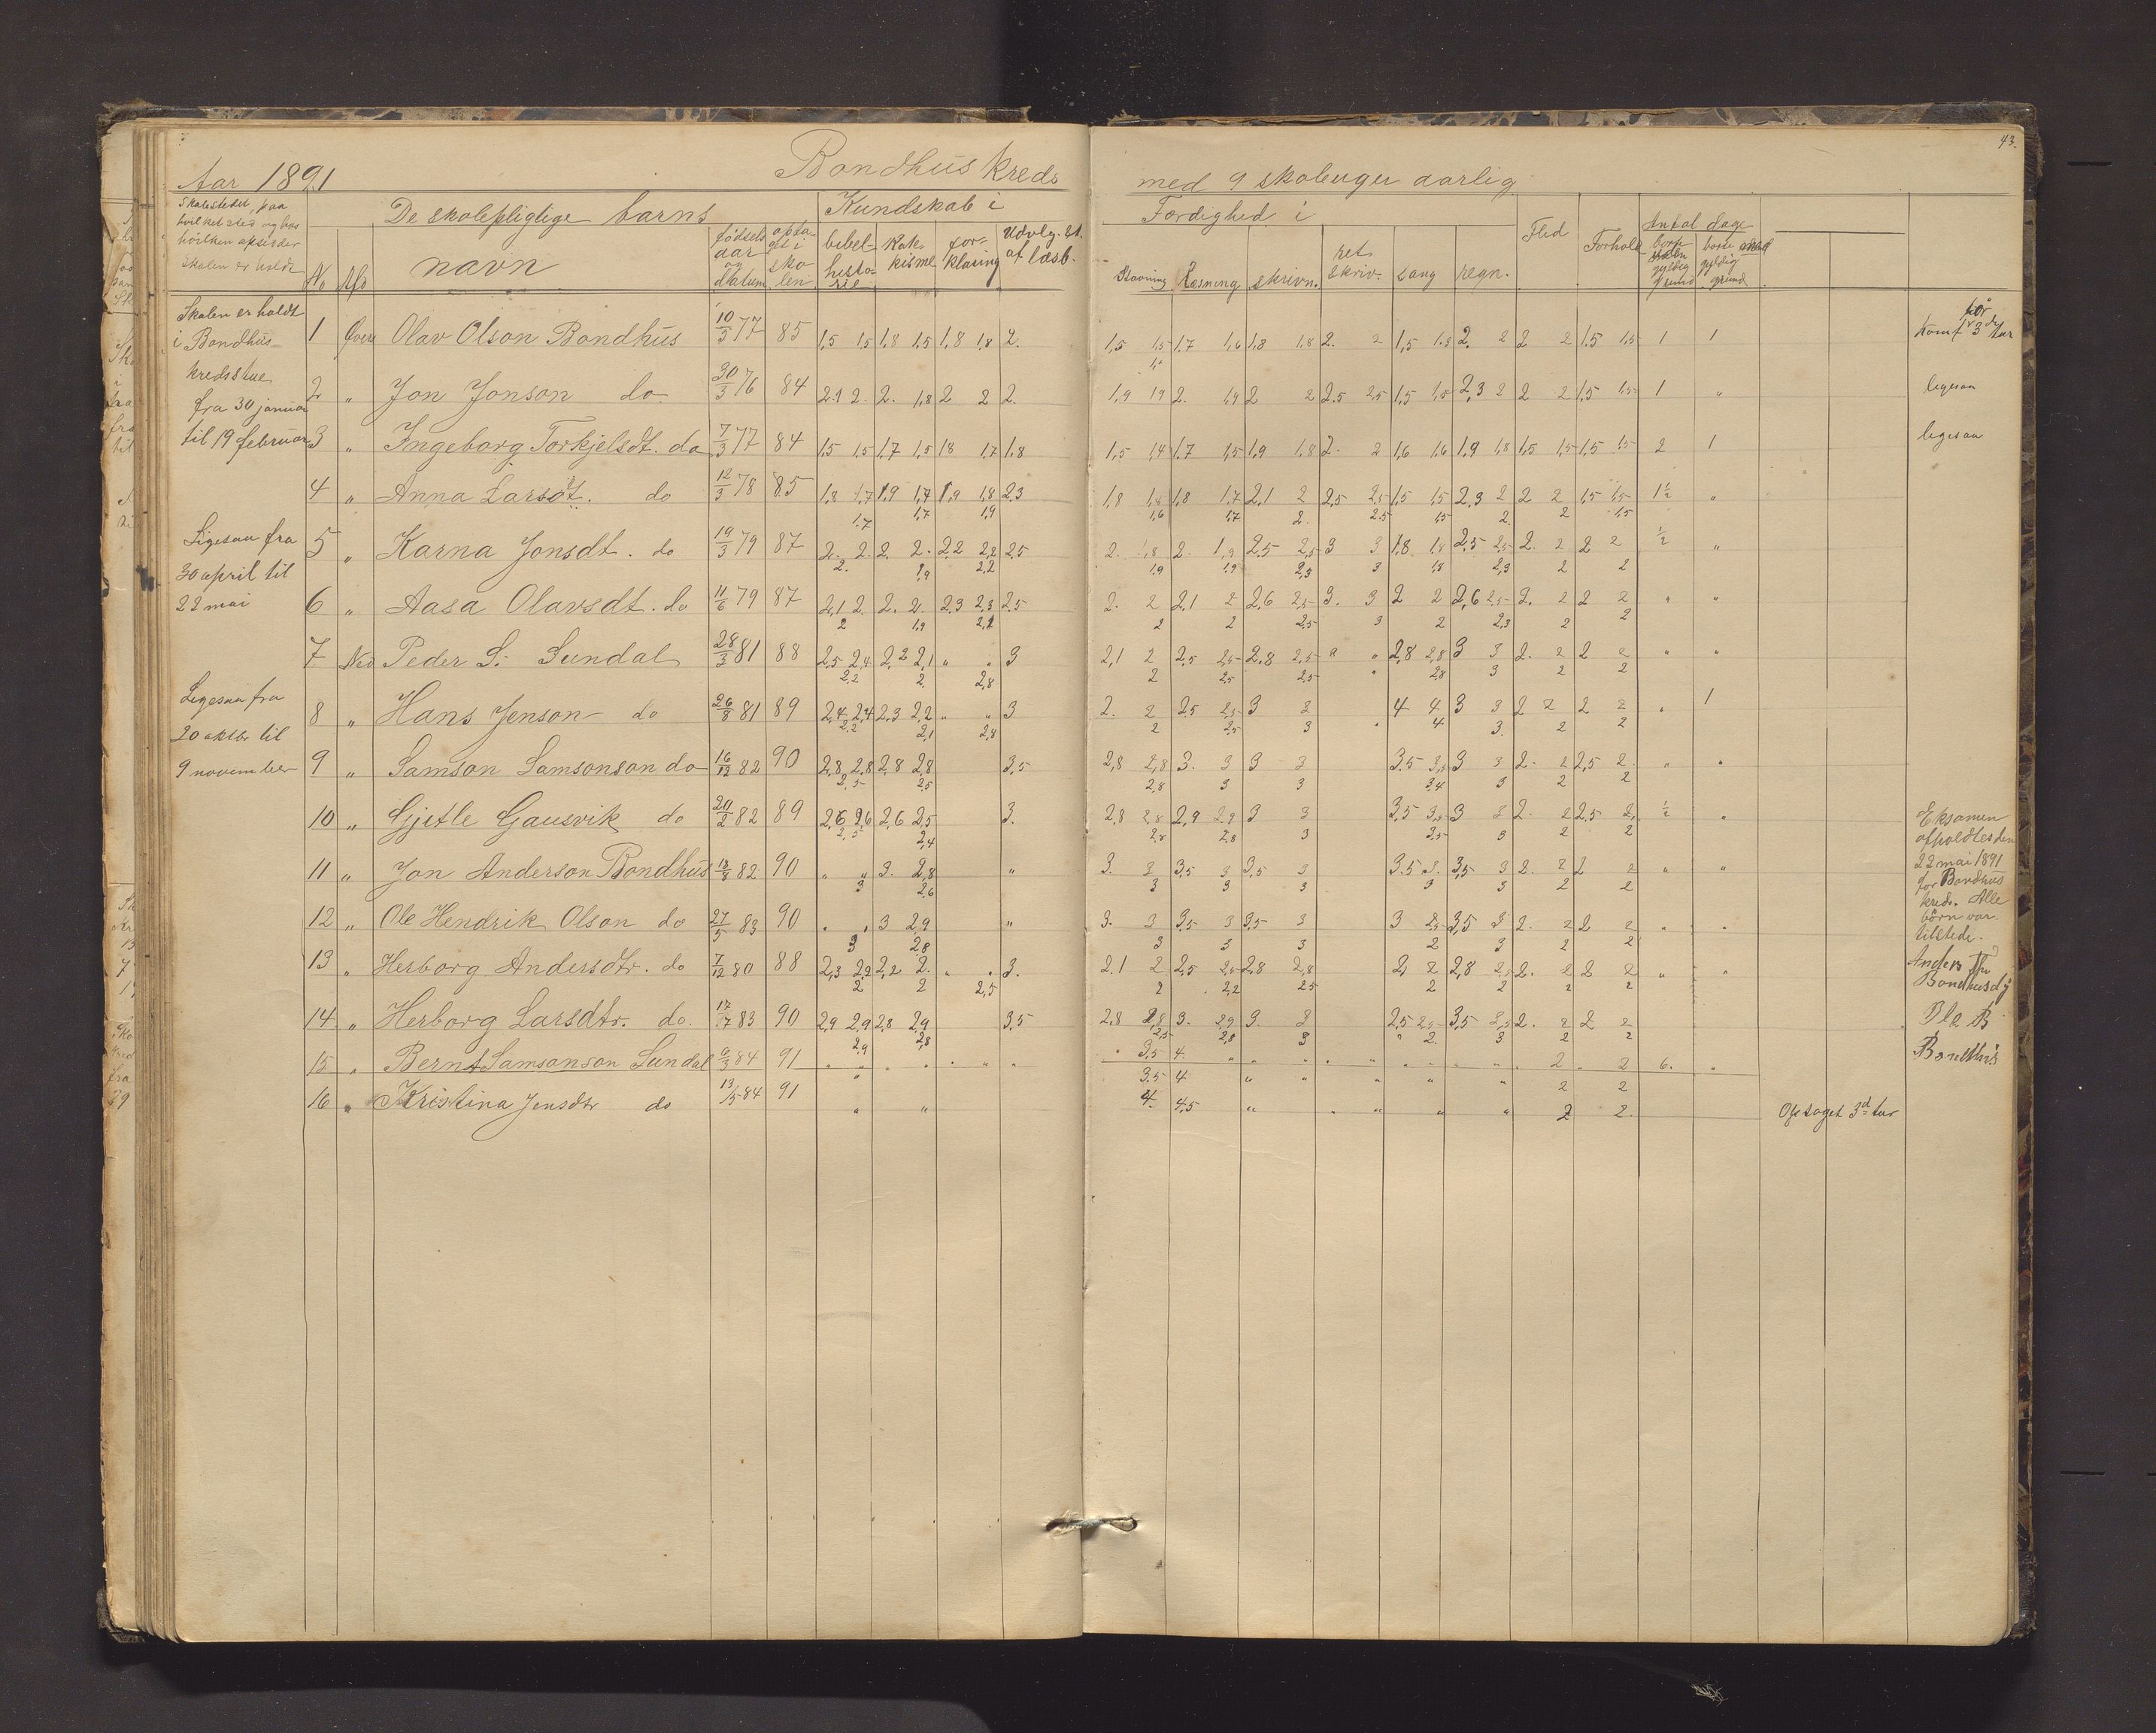 43.
Aar 1891 Bondhus kreds med 9 skoleuger aarlig
Skolestedet, paa
hvilket sted og hos
hvilken opsidder
skolen er holdt
De skolepligtige barns
No Afd navn
fødsels
aar
og
datum
opta-
get i
sko-
len
Kundskab i
bibel-
histo-
rie
Kate-
kisme
for-
klaring
Udvlg. st.
af læsb.
Færdighed i
Stavning Læsning skrivn. ret skriv. sang regn.
Flid Forhold
Antal dage
borte
gyldig
grund
borte
gyldig
grund
Skolen er holdt
i Bondhus
kredsstue
fra 30 januar
til 19 februar
Ligesaa fra
30 april til
22 mai
Ligesaa fra
20 oktbr til
9 november
1 Øvre Olav Olson Bondhus 10/3 77 85 1,5 1,5 1,8 1,5 1,8 1,8 2. 1,5 1,5 1,7 1,6 1,8 1,8 2. 2 1,5 1.5 2. 2 2 2 1,5 1,5 1 1
2 " Jon Jonson do. 30/3 76 84 2.1 2. 2. 1,8 2 2 2. 1,9 19 2. 1,9 2 2 2.5 2,5 1,5 1,5 2,3 2 2 2 1,5 1,5 1 "
ligesaa
3 " Ingeborg Torkjelsdt. do 7/3 77 84 1,5 1,5 1,7 1,5 18 1,7 1,8 1,5 1,4 1,7 1,5 1,9 1,8 2. 2 1,6 1,6 1,9 1,8 1,5 1,5 1,5 1,5 2 1
ligesaa
4 " Anna Larsdt. do 12/3 78 85 1,8 1,7 1,9 1,7 1,9 1,8 2,3 1,8 1,8 1,8 1,7 2,1 2 2,5 2,5 1,5 1,5 2,3 2 2 2 1,5 1,5 1½ "
1,7 1,7 1,9 1,6 1,7 2. 2.5 1,5 2. 2 1,5
5 " Karna Jonsdt. do 19/3 79 87 2. 2. 2. 2. 2.2 2,2 2,5 2. 1,8 2. 1,9 2.5 2,5 3 3 1,8 1,8 2,5 2,5 2. 2 2 2 ½ "
2. 1,9 2,2 1,9 1,9 2,5 3 1,8 2,3 2 2
6 " Aasa Olavsdt. do 11/6 79 87 2,1 2. 2. 2. 2,3 2,3 2,5 2. 2 2,1 2 2,6 2,5 3. 3 2 2 2,6 2,5 2. 2 2 2 " "
2 1,9 2,2 2 2 2,5 3 2 2,3 2 2
7 Ned Peder S. Sundal 28/3 81 88 2,5 2,4 2,2 2,1 " " 3 2,1 2 2,5 2,5 2,8 2,5 " " 2,8 2,8 3 3 2. 2 2 2 " "
2,2 2. 2,8 2 2,5 2,5 " 2,8 3 2 2
8 " Hans Jenson do 26/8 81 89 2,4 2,4 2,3 2,2 " " 3 2. 2 2,5 2,5 3 3 4 4 3 3 2 2 2 2 " 1
2,2 2,1 2,8 2 2,5 3 " 4 3. 2 2
9 " Samson Samsonson do 16/12 82 90 2,8 2,8 2,8 2,8 3,5 2,8 2,8 3. 3 3 3 3.5 3,5 3 3 2. 2 2,5 2 " "
2,5 2,5 2,8 3 3 3,4 3 2 2
10 " Gjetle Gausvik do 20/2 82 89 2,6 2,6 2,6 2,5 3. 2.8 2,8 2,9 2,9 3 3 3,5 3,5 3 3 2. 2 2,5 2, ½ "
2,5 2,4 2,8 2,8 3 3,5 3 2 2
11 " Jon Anderson Bondhus 18/8 82 90 " " 3. 2,8 " 3. 3 3,5 3 3,5 3 3.5 3. 3,5 3 2. 2 2 2 " "
3 2,6 3 3 3 3 3 2 2
12 " Ole Hendrik Olson do 27/5 83 90 " " 3 2,9 " 3. 3 3,5 3 3,5 3 3 2,5 3,5 3 2. 2 2 2 " "
3 2,8 3 3 3 2 3 2 2
13 " Herborg Andersdtr. do 7/12 80 88 2,3 2,2 2,2 2. " " 3. 2.1 2 2,5 2,5 2,8 2,8 2, 2 2,8 2,5 2. 2 2 2 " "
2 2 2,5 2 2,2 2,5 2 2 2 2
14 " Herborg Larsdtr. do. 17/7 83 90 2,9 2,9 2,8 2,9 3,5 2,8 2,8 3. 2,9 3. 3 2,5 2,5 3,5 3,5 2. 2 2 2
2,9 2,8 2,5 2,8 3 " 2. 3 2 2
15 " Bernt Samsonson Sundal 9/3 84 91 3,5 4. 2 2 6. "
3.5 4 " " " " " 2 2
16 " Kristina Jensdtr do 13/5 84 91 " " 4. 4,5 " " " " " 2 2.
Optaget 3d tur
Eksamen
afholdtes den
22 mai 1891
for Bondhus
kreds. Alle
börn var
tilstede.
Anders
Bondhus
Ole B
Bondhus